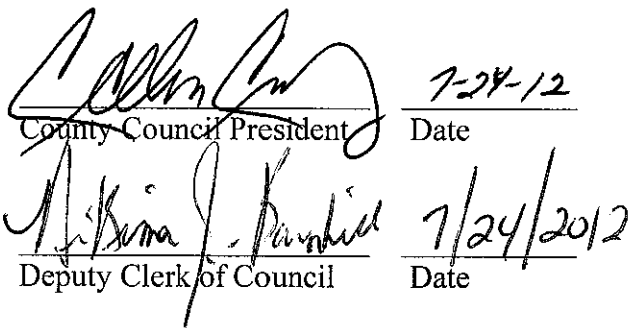 7-24-12
County Council President Date
J. 7/24/2012
Deputy Clerk of Council Date